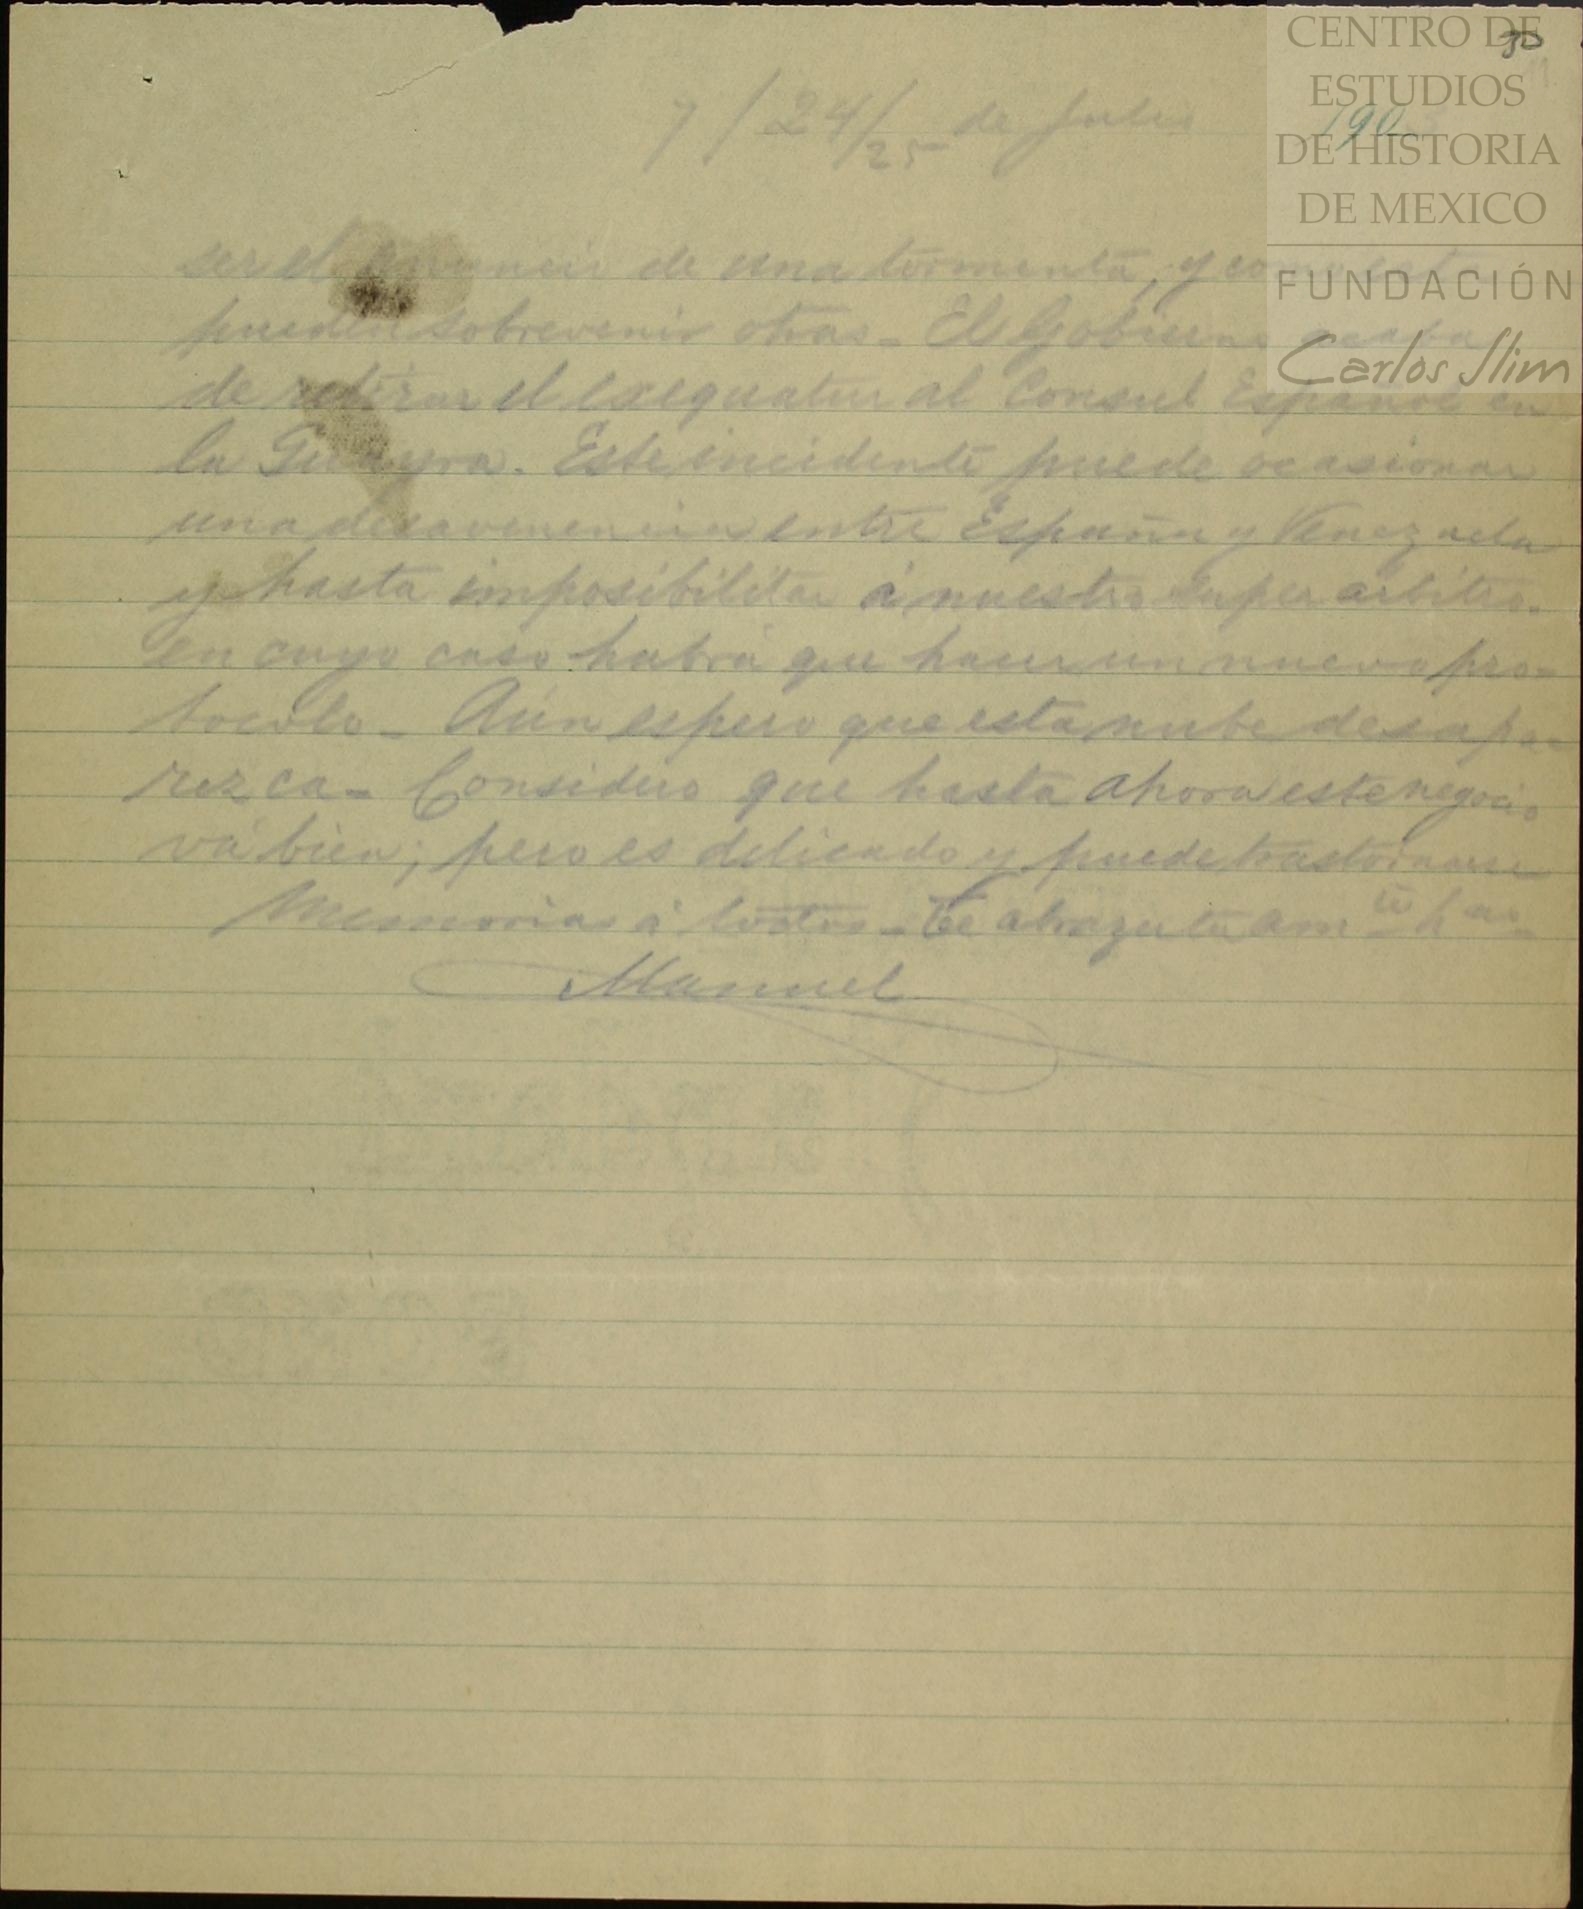 CENTRO DE
ESTUDIOS
DE HISTORIA
DE MEXICO
FUNDACIÓN
Carlos Slim
190
7 / 24/25 de Julio
ser el anuncio de una tormenta, y como esta
pueden sobrevenir otras - El Gobierno acaba
de retirar el exequatur al Consul Español en
la Guayra. Este incidente puede ocasionar
una desavenencia entre España y Venezuela
y hasta imposibilitar á nuestro superarbitro.
en cuyo caso habrá que hacer un nuevo pro-
tocolo - Aún espero que esta nube desapa-
rezca - Considero que hasta ahora este negocio
vá bien; pero es delicado y puede trastornarse
Memorias á todos - Te abraza tu am
Manuel